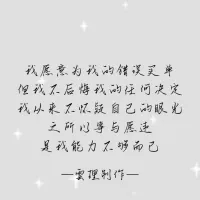 我愿意为我的错误买单
但我不后悔我的任何决定
我从来不怀疑自己的眼光
之所以事与愿违
是我能力不够而已
—云理制作—